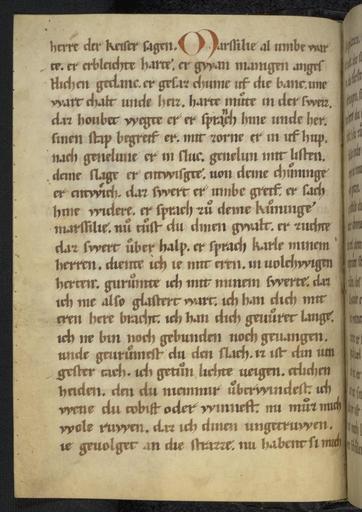 herre der keiser sagen. Marssilie al umbe war
te. er erbleichte harte. er gwan manigen anges
tlichen gedanc. er gesaz chume uf die banc. ime
wart chalt unde heiz. harte můte in der sweiz.
daz houbet wegte er er sprach hine unde her.
sinen stap begreif er. mit zorne er in uf hůp.
nach genelune er in sluc. genelun mit listen.
deme slage er entwisgte. uon deme chůninge
er entwich. daz swert er umbe greif. er sach
hine widere. er sprach zů deme kůninge
marssilie. nů tůst du dinen gwalt. er zuchte
daz swert ůber halp. er sprach karle minem
herren. diente ich ie mit eren. in uolchwigen
herten. gerůmte ich mit minem swerte. daz
ich nie also glastert wart. ich han dich mit
eren here bracht. ich han dich geuůret lange.
ich ne bin noch gebunden noch geuangen.
unde geurůmest du den slach. iz ist din iun
gester tach. ich getůn lichte ueigen. etlichen
heiden. den du niemmir ůberwindest. ich
wene du tobist oder winnest. nu můz mich
wole ruwen. daz ich dinen ungetruwen.
ie geuolget an die strazze. nu habent si mich